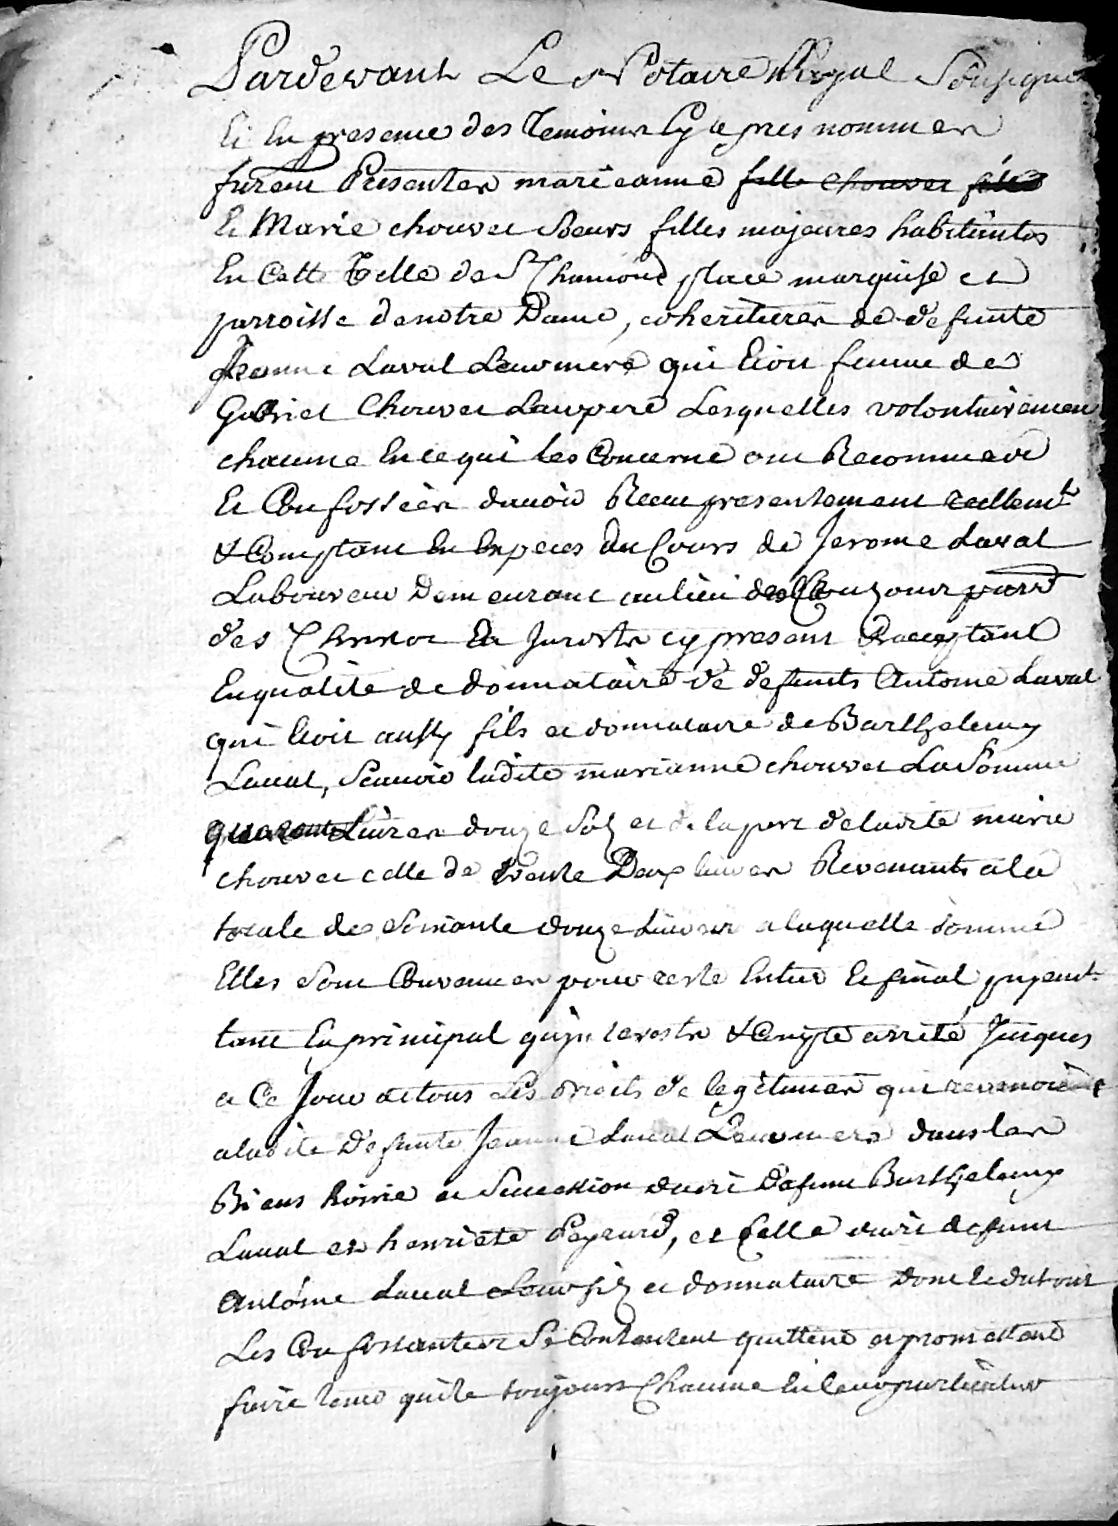 Pardevant Le Notaire Royal Soussigné
Et En presence des Temoins Cy apres nommes
furent Presentes marieanne fille chouvet
Et Marie chouvet Soeurs filles majeures habitantes
En Cette Ville de St Chamond place marquise et
parroisse de notre Dame, coheritieres de defunte
Jeanne Laval Leur mere qui Etoit femme de
Gabriel Chouvet Leur pere Lesquelles volontairement
chacune En ce qui les Concerne ont Reconnu avoir
Et Confessées davoir Receu presentement reellemt
& Comptant En Especes du Cours de Jerome Laval
Laboureur Demeurant au lieu de parr
des en Jarest cy present & acceptant
En qualité de donnataire de defunts Antoine Laval
qui Etoit aussy fils et donnataire de Barthelemy
Laval, Scavoir ladite marianne chouvet La Somme
quarante Livres douze Sols et de la part de ladite marie
chouvet celle de trente Deux livres Revenants a la
totale de Soixante douze Livres a laquelle Somme
Elles Sont Convenues pour reste Entier & final payemt
tant En principal qu'interestz & Compte arreté Jusques
a Ce Jour de tous Les droits de legitimes qui revenoient
a ladite Defunte Jeanne Laval Leur mere dans les
Biens hoirie et Succession dudit Defunt Barthelemy
Laval et henriete Peyrard, et Celle dudit defunt
Antoine Laval Leur fils et donnataire Dont & du tout
Les Confessantes Se Contentent quittent et promettent
faire tenir quite toujours Chacune En leur particulier